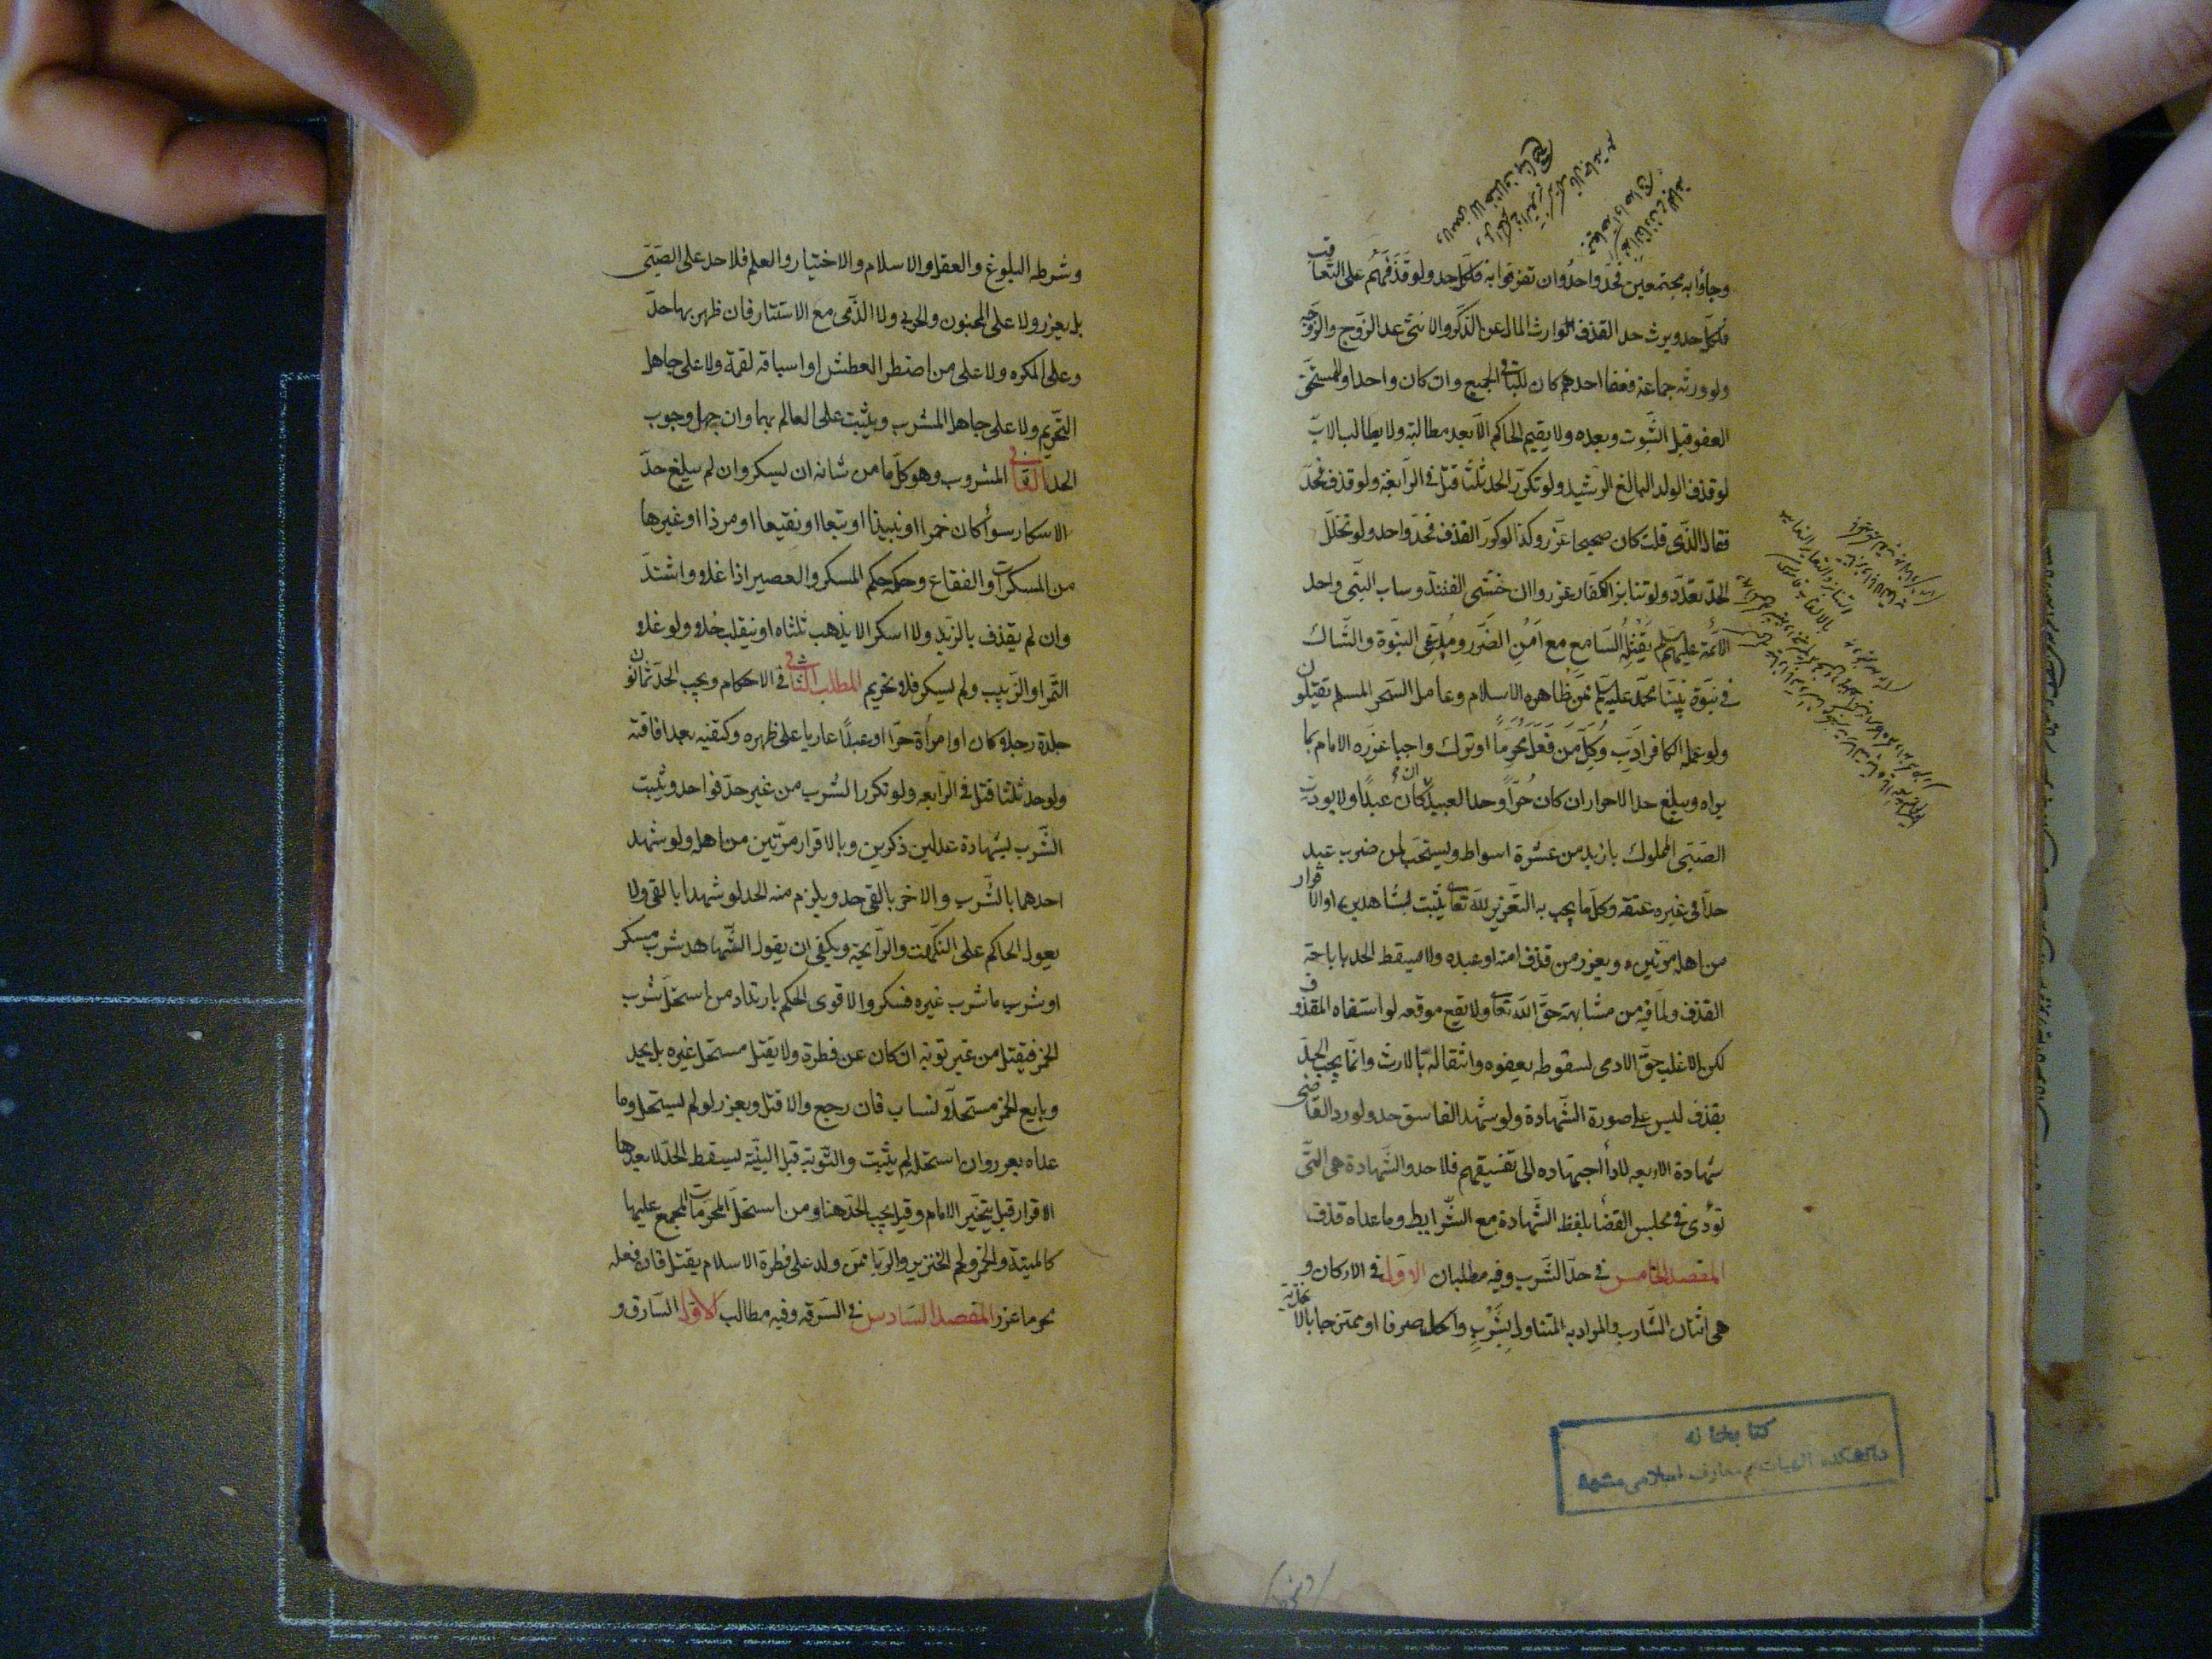 وجاؤا به مجتمعين فحد واحد وان تفرقوا به فلكل حد ولو قذفهم على التعاقب
فلكل حد ويرث حد القذف الوارث المال عن الذكر والانثى عدا الزوج والزوجة
ولو ورثه جماعة فعفا احدهم كان للباقي الجميع وان كان واحدا وللمستحق
العفو قبل الثبوت وبعده ولا يقيم الحاكم الا بعد مطالبته ولا يطالب الاب
لو قذف الولد البالغ الرشيد ولو تكرر الحد ثلثا قتل في الرابعة ولو قذف فحد
فقال الذي قلت كان صحيحا عزر وكذا لو كرر القذف فحد واحد ولو تخلل
الحد تعدد ولو تنابز الكفار عزروا ان خشى الفتنة وساب النبي واحد
الائمة عليهم يقتله السامع مع امن الضرر ومدعى النبوة والشاك
في نبوة نبينا محمد عليه ممن ظاهره الاسلام وعامل السحر المسلم يقتلون
ولو عمله الكافر ادب وكل من فعل محرما او ترك واجبا عزره الامام بما
يراه ويبلغ حد الاحرار ان كان حرا وحد العبيد ان كان عبدا ولا يودب
الصبي المملوك بازيد من عشرة اسواط ويستحب لمن ضرب عبده
حدا في غيره عتقه وكل ما يجب به التعزير لله تعا يثبت بشاهدين او الاقرار
من اهله مرتين ويعزر من قذف امته او عبده ولا يسقط الحد باباحة
القذف ولما فيه من مشابهة حق الله تعا ولا يقع موقعه لو استفاه المقذوف
لكن الاغلب حق الادمى لسقوطه بعفوه وانتقاله بالارث وانما يجب الحد
بقذف ليس على صورة الشهادة ولو شهد الفاسق حد ولو رد القاضى
شهادة الاربعه لاداء اجتهاده الى تفسيقهم فلا حد والشهادة هى التى
تؤدى في مجلس القضا بلفظ الشهادة مع الشرايط وما عداه قذف
المقصد الخامس في حد الشرب وفيه مطلبان الاول في الاركان و
هى اثنان الشارب والمراد به المتناول بشرب واكل صرفا او ممتزجا بالاغذية
كتابخانه
دانشكده الهيات و معارف اسلامى مشهد
وشرطه البلوغ والعقل والاسلام والاختيار والعلم فلا حد على الصبى
بل يعزر ولا على المجنون والحربى ولا الذمى مع الاستتار فان ظهر بها حد
وعلى المكره ولا على من اضطر العطش او اساغة لقمة ولا على جاهل
التحريم ولا على جاهل المشرب ويثبت على العالم بهما وان جهل وجوب
الحد الثانى المشروب وهو كل ما من شانه ان يسكر وان لم يبلغ حد
الاسكار سواء كان خمرا او نبيذا او بتعا او نقيعا او مرزا او غيرها
من المسكرات والفقاع وحكمه حكم المسكر والعصير اذا غلا واشتد
وان لم يقذف بالزبد ولا اسكر الا يذهب ثلثاه او ينقلب خلا ولو غلا
التمر او الزبيب ولم يسكر فلا تحريم المطلب الثانى في الاحكام ويجب الحد ثمانون
جلدة رجلا كان او امرأة حرا او عبدا عاريا على ظهره وكتفيه بعد افاقته
ولو حد ثلثا قتل في الرابعه ولو تكرر الشرب من غير حد فواحد ويثبت
الشرب بشهادة عدلين ذكرين وبالاقرار مرتين من اهله ولو شهد
احدهما بالشرب والاخر بالقى حد ويلزم منه الحد لو شهدا بالقى ولا
يعول الحاكم على النكهت والرائحة ويكفى ان يقول الشاهد شرب مسكر
او شرب ما شرب غيره فسكر والاقوى الحكم بارتداد من استحل شرب
الخمر فيقتل من غير توبة ان كان عن فطرة ولا يقتل مستحل غيره بل يحد
وبايع الخمر مستحلا يستتاب فان رجع والا قتل ويعزر لو لم يستحل وما
عداه يعزر وان استحل لم يثبت والتوبة قبل البينة يسقط الحد لا بعدها
الاقرار قيل يتخير الامام وقيل يجب الحد هنا ومن استحل المحرمات المجمع عليها
كالميتة والخمر ولحم الخنزير والربا ممن ولد على فطرة الاسلام يقتل فان فعله
محرما عزر المقصد السادس في السرقه وفيه مطالب الاول السارق و